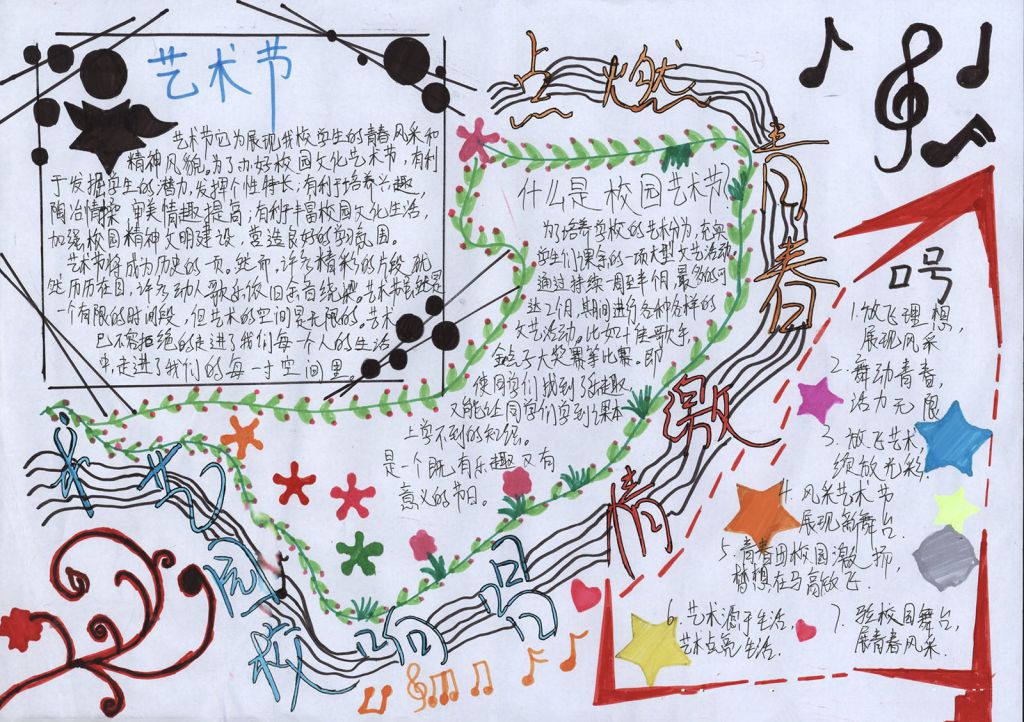 艺术节
艺术节它为展现我校学生的青春风采和
精神风貌。为了办好校园文化艺术节,有利
于发掘学生的潜力,发挥个性特长,有利于培养兴趣
陶冶情操,审美情趣提高;有利于丰富校园文化生活,
加强校园精神文明建设,营造良好的学习氛围。
艺术节将成为历史的一页。然而,许多精彩的片段,依
然历历在目,许多动人歌乐依旧余音绕梁。艺术节虽然是
一个有限的时间段,但艺术的空间是无限的。艺术
已不容拒绝的走进了我们每一个人的生活
中,走进了我们的每一寸空间里
点燃青春激情
什么是校园艺术节
为了培养学校的艺术分为,充实
学生们课余的一项大型文艺活动
通过持续一周至半个月,最多的可
达2个月,期间进行各种各样的
文艺活动。比如十佳歌手,
金点子大奖赛等比赛。即
使同学们找到了乐趣,
又能让同学们学到课本
上学不到的知识。
是一个既有乐趣又有
意义的节日。
口号
1.放飞理想,
展现风采
2.舞动青春,
活力无限
3.放飞艺术,
绽放光彩,
4.风采艺术节
展现新舞台.
5.青春由校园激扬,
梦想在马高放飞.
6.艺术源于生活,
艺术点亮生活.
7.弦校园舞台,
展青春风采.
校园